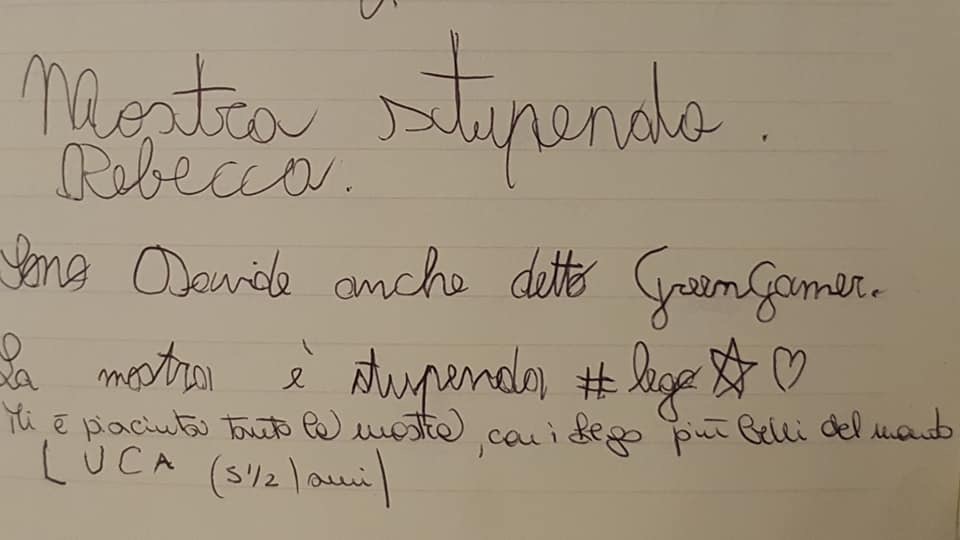 Mostra stupenda.
Rebecca.
Sono Davide anche detto GreenGamer.
La mostra è stupenda #lego ☆ ♡
Mi è piaciuta tanto la mostra, con i Lego più belli del mondo
LUCA (5 1/2 anni)